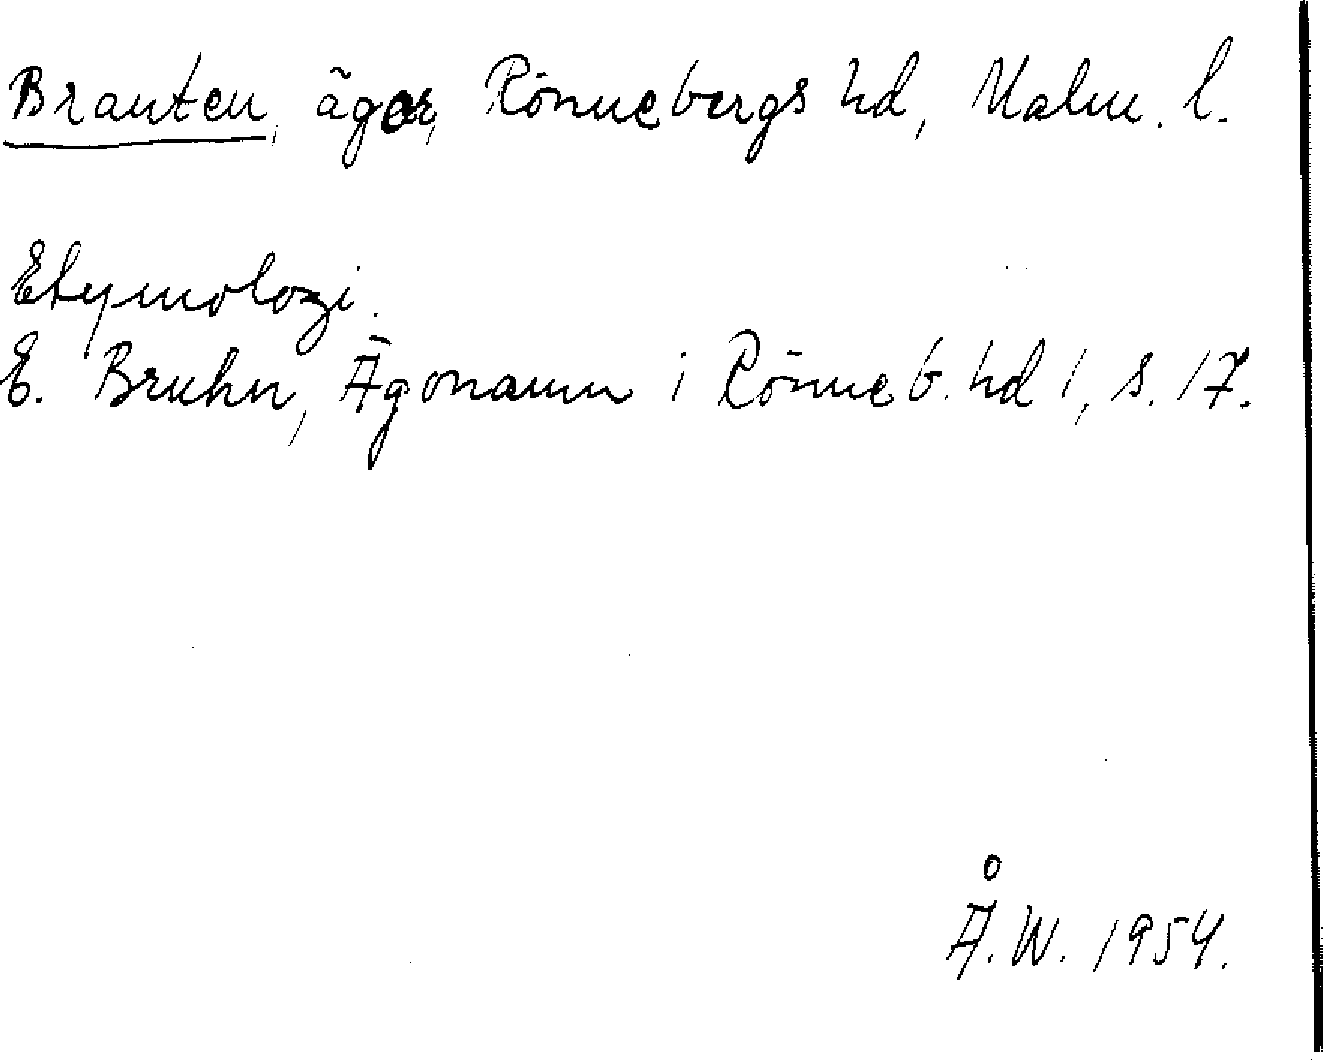 Branten, ägor, Rönnebergs hd, Malm. l.
Etymologi.
E. Bruhn, Ägonamn i Rönneb. hd 1, s. 17.
Å.W. 1954.